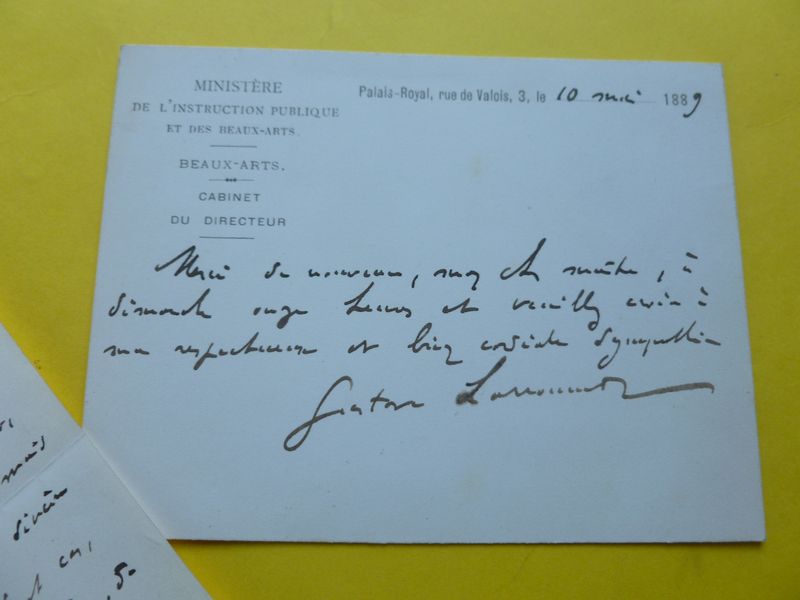 MINISTÈRE
DE L'INSTRUCTION PUBLIQUE
ET DES BEAUX-ARTS.
BEAUX-ARTS.
CABINET
DU DIRECTEUR
Palais-Royal, rue de Valois, 3, le 10 mai 1889
Merci de nouveau, mon cher maître, à
dimanche onze heures et veuillez croire à
ma respectueuse et bien cordiale sympathie
Gustave Larroumet
mais